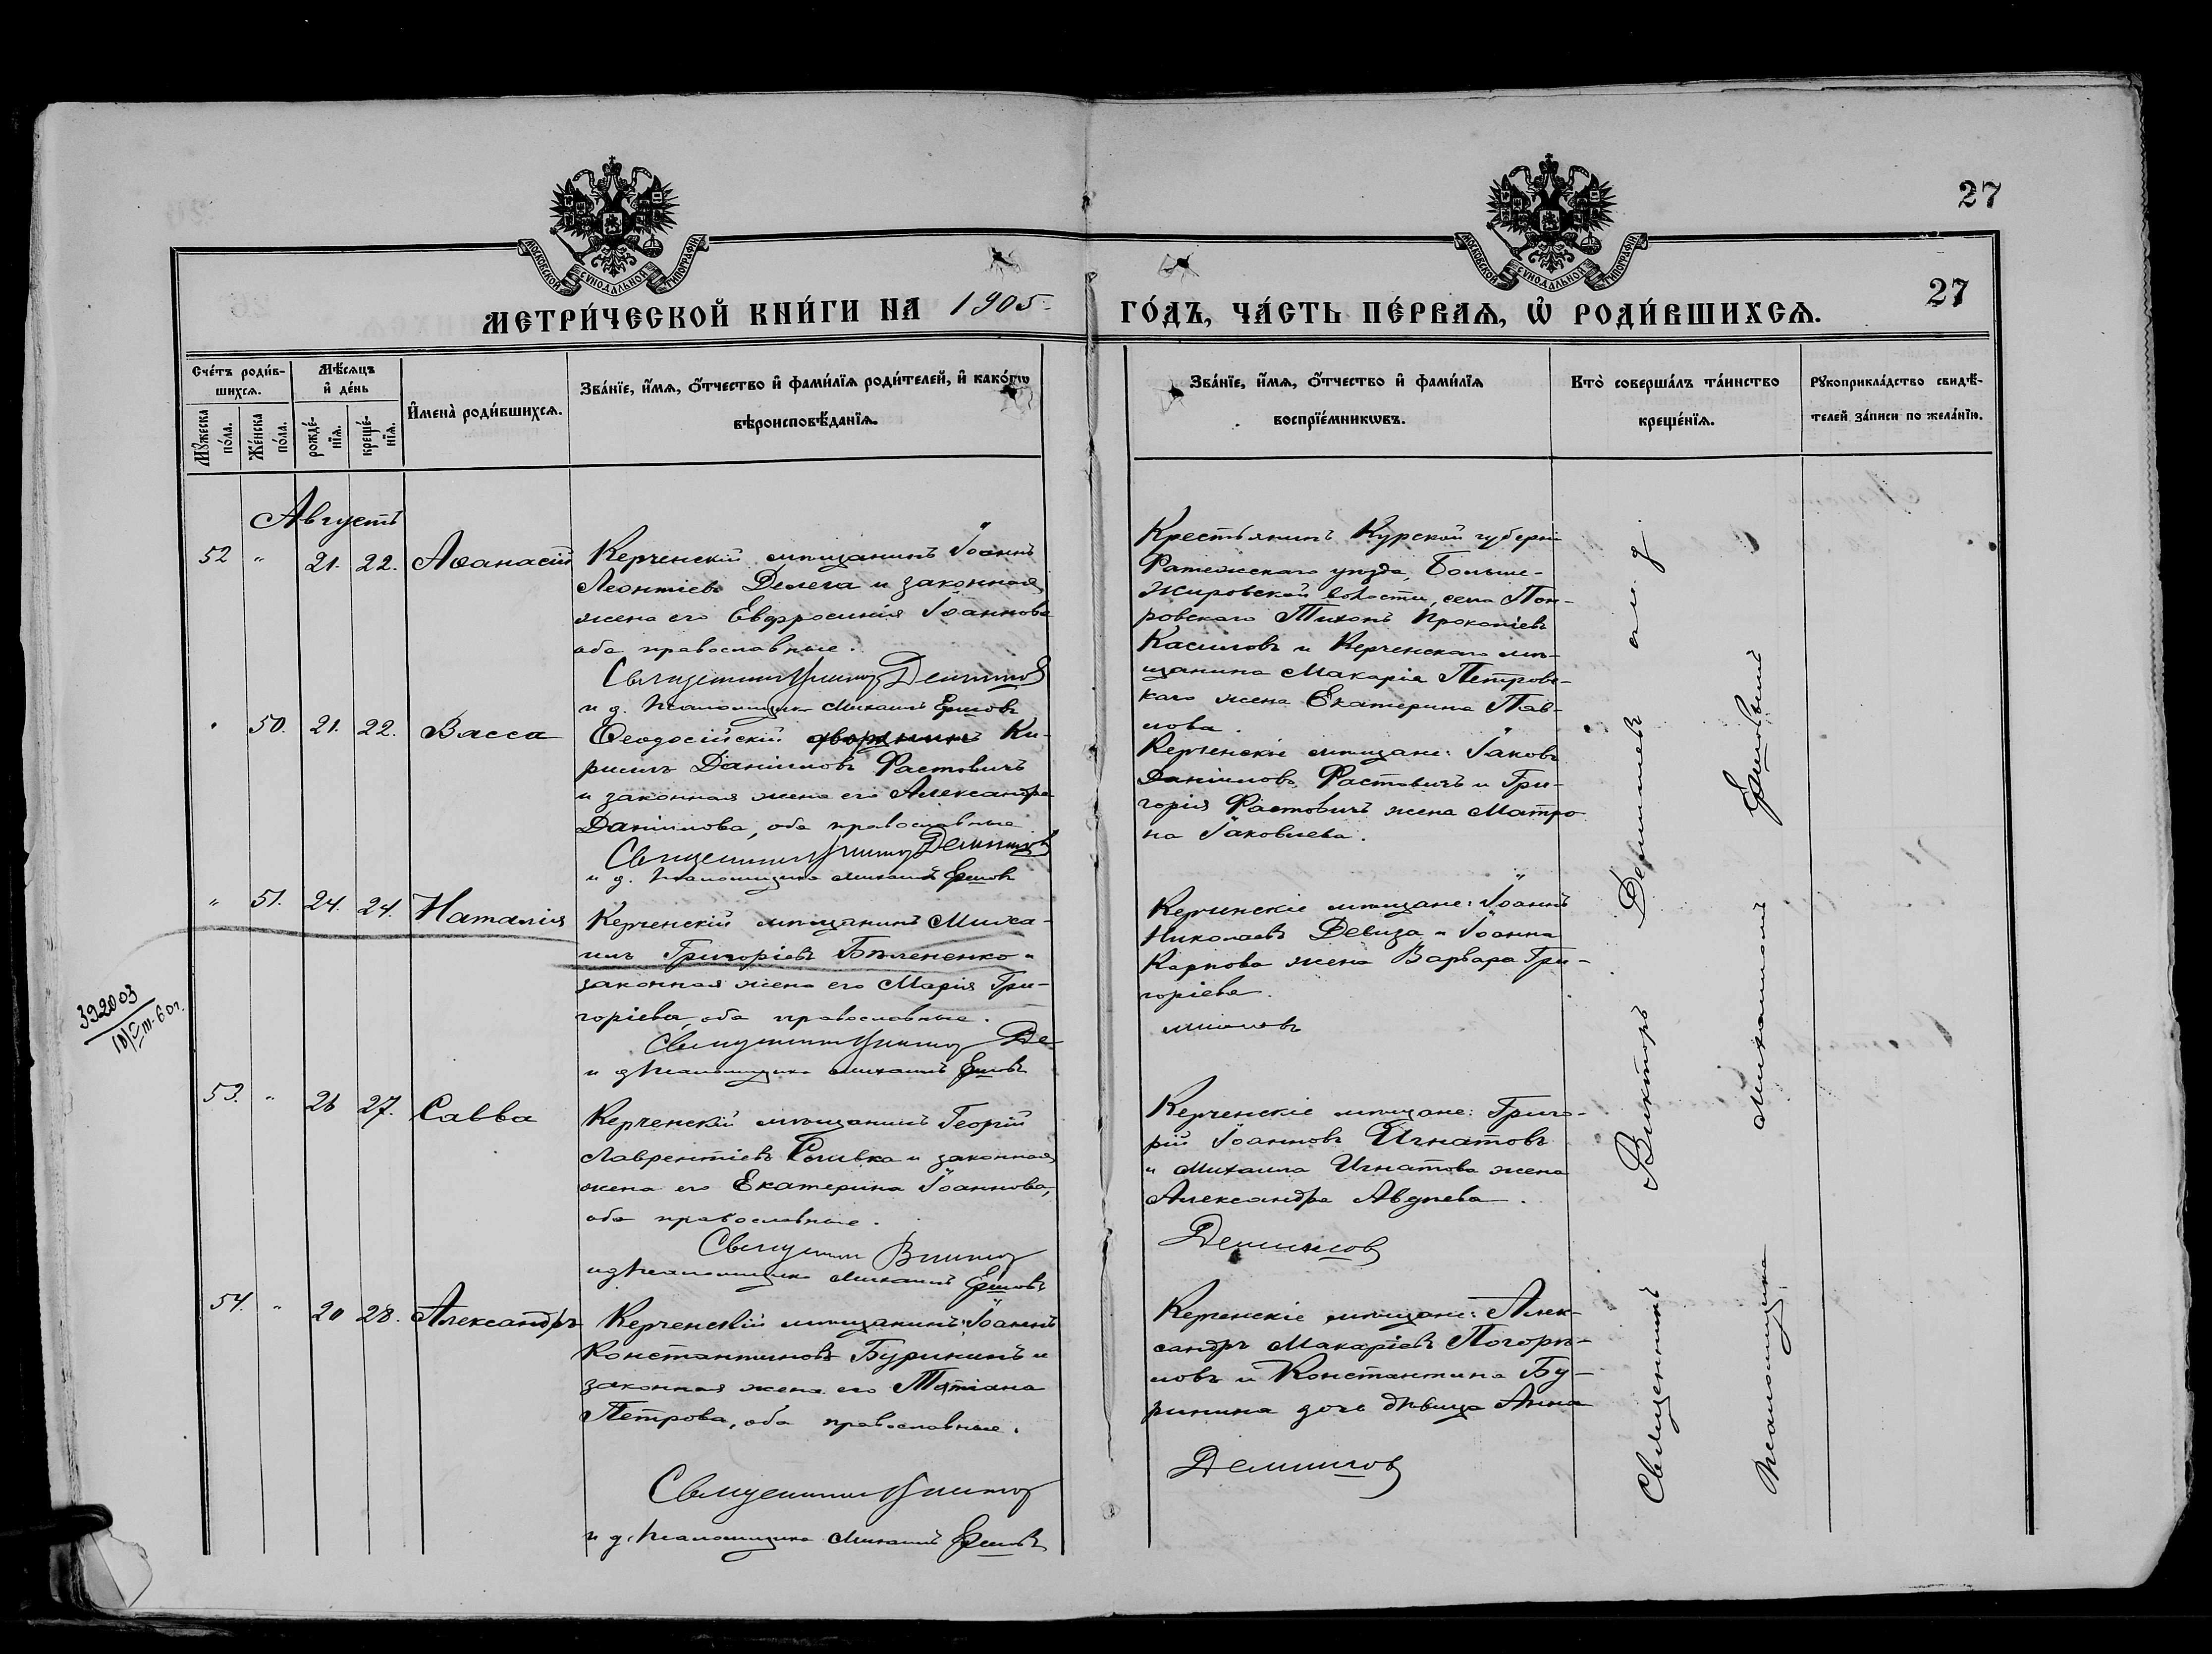 27
МОСКОВСКОЙ СѴНОДАЛЬНОЙ ТИПОГРАФІИ
МОСКОВСКОЙ СѴНОДАЛЬНОЙ ТИПОГРАФІИ
27
МЕТРИ́ЧЕСКОЙ КНИ́ГИ НА 1905. ГО́ДЪ, ЧА́СТЬ ПЕ́РВАѦ, Ѡ҆ РОДИ́ВШИХСѦ.
Сче́тъ роди́в-
шихсѧ.
Мꙋ́жеска
по́ла.
Же́нска
по́ла.
Мѣ́сѧцъ
и҆ де́нь
рожде́-
нїѧ.
креще́-
нїѧ.
И҆мена̀ роди́вшихсѧ.
Зва́нїе, и҆́мѧ, о҆́тчество и҆ фами́лїѧ роди́телей, и҆ како́гѡ
вѣроисповѣ́данїѧ.
Зва́нїе, и҆́мѧ, о҆́тчество и҆ фами́лїѧ
воспрїе́мникѡвъ.
Кто̀ соверша́лъ та́инство
креще́нїѧ.
Рꙋкоприкла́дство свидѣ́-
телей за́писи по жела́нїю.
Августъ
52 " 21. 22. Аѳанасій
Керченскій мѣщанинъ Іоаннъ
Леонтіевъ Делега и законная
жена его Евфросинія Іоаннова
оба православные.
Священникъ Викторъ Демишов
и д. псаломщика Михаилъ Ершовъ
Крестьянинъ Курской губерніи
Фатежскаго уѣзда, Больше-
Жировской волости, села Пок-
ровскаго Тихонъ Прокопіевъ
Касиловъ и Керченскаго мѣ-
щанина Макарія Петровс-
каго жена Екатерина Пав-
лова.
" 50. 21. 22. Васса
Ѳеодосійскій дворянинъ Ки-
риллъ Даніиловъ Фастовичъ
и законная жена его Александра
Даніилова, оба православные
Священникъ Викторъ Демишов
и д. псаломщика Михаилъ Ершовъ
Керченскіе мѣщане: Іаковъ
Даніиловъ Фастовичъ и Гри-
горія Фастовичъ жена Матро
на Іаковлева.
" 51. 24. 24. Наталія
Керченскій мѣщанинъ Миха-
илъ Григоріевъ Бѣлененко и
законная жена его Марія Гри-
горіева, оба православные.
Священникъ Викторъ Де-
и д псаломщика Михаилъ Ершовъ
Керченскіе мѣщане: Іоаннъ
Николаевъ Девиза и Іоанна
Карпова жена Варвара Гри-
горіева.
мишовъ
392003
53. " 26 27. Савва
Керченскій мѣщанинъ Георгій
Лаврентіевъ Сливка и законная
жена его Екатерина Іоаннова,
оба православные.
Священник Виктор
и д псаломщика Михаилъ Ершовъ
Керченскіе мѣщане: Григо-
рій Іоанновъ Игнатовъ
и Михаила Игнатова жена
Александра Авдѣева.
Демишов
54. " 20 28. Александръ
Керченскій мѣщанинъ Іоаннъ
Константиновъ Бурининъ и
законная жена его Татіана
Петрова, оба православные.
Священникъ Виктор
и д. псаломщика Михаилъ Ершовъ
Керченскіе мѣщане: Алек-
сандръ Макаріевъ Погорѣ-
ловъ и Константина Бу-
ринина дочь дѣвица Анна
Демишов
Священникъ Викторъ
Псаломщика Михаилъ